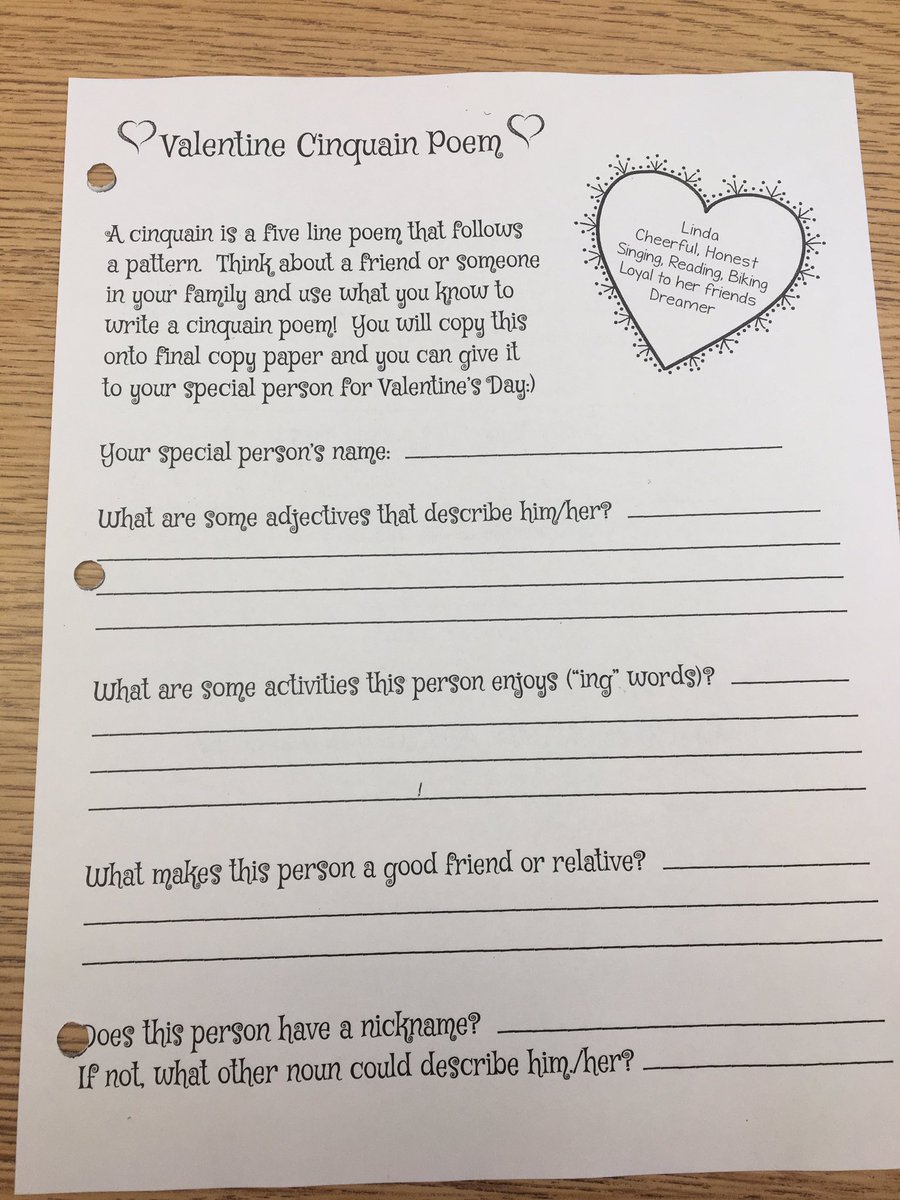 Valentine Cinquain Poem
A cinquain is a five line poem that follows
a pattern. Think about a friend or someone
in your family and use what you know to
write a cinquain poem! You will copy this
onto final copy paper and you can give it
to your special person for Valentine's Day:)
Linda
Cheerful, Honest
Singing, Reading, Biking
Loyal to her friends
Dreamer
Your special person's name:
What are some adjectives that describe him/her?
What are some activities this person enjoys ("ing" words)?
What makes this person a good friend or relative?
Does this person have a nickname?
If not, what other noun could describe him./her?